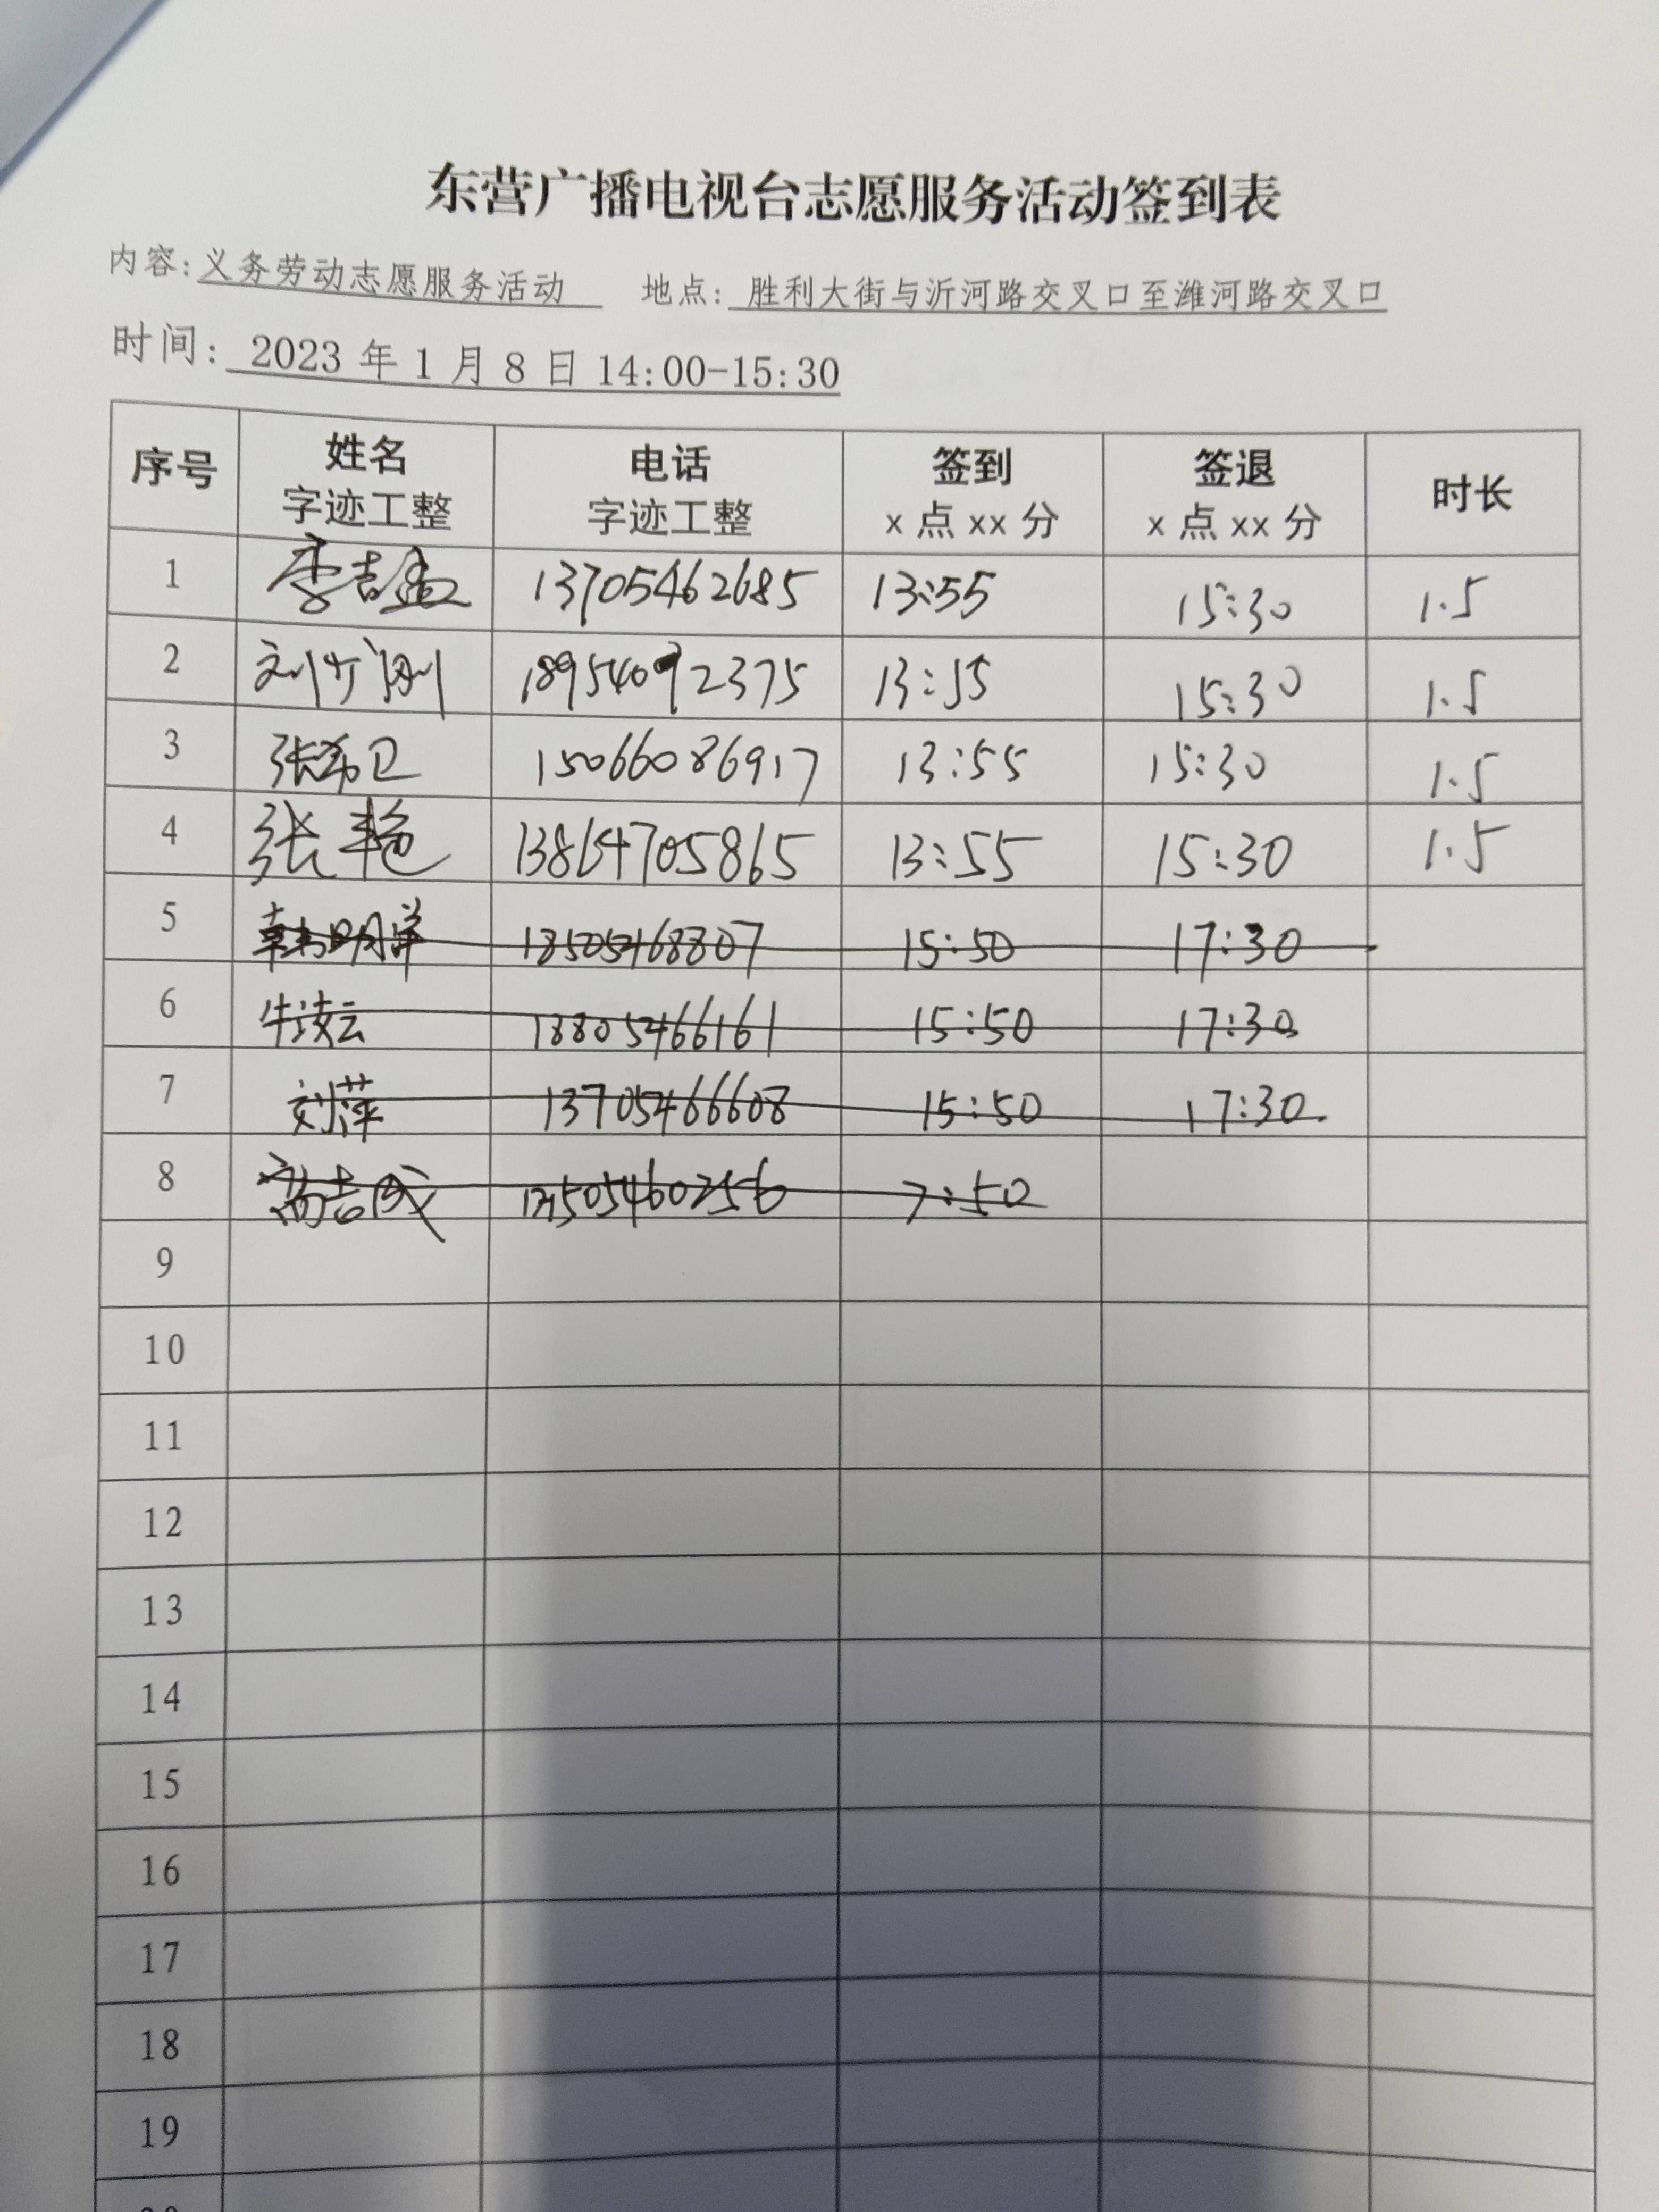 东营广播电视台志愿服务活动签到表
内容:义务劳动志愿服务活动 地点:胜利大街与沂河路交叉口至潍河路交叉口
时间:2023年1月8日14:00-15:30
序号 姓名 电话 签到 签退 时长
字迹工整 字迹工整 x点xx分 x点xx分
1 李吉孟 13705462685 13:55 15:30 1.5
2 刘广刚 18954092375 13:55 15:30 1.5
3 张希卫 15066086917 13:55 15:30 1.5
4 张艳 13864705865 13:55 15:30 1.5
5 韩明洋 18505468807 15:50 17:30
6 牛云 18805466161 15:50 17:30
7 刘萍 13705466608 15:50 17:30
8 吉成 13505460256 7:50
9
10
11
12
13
14
15
16
17
18
19